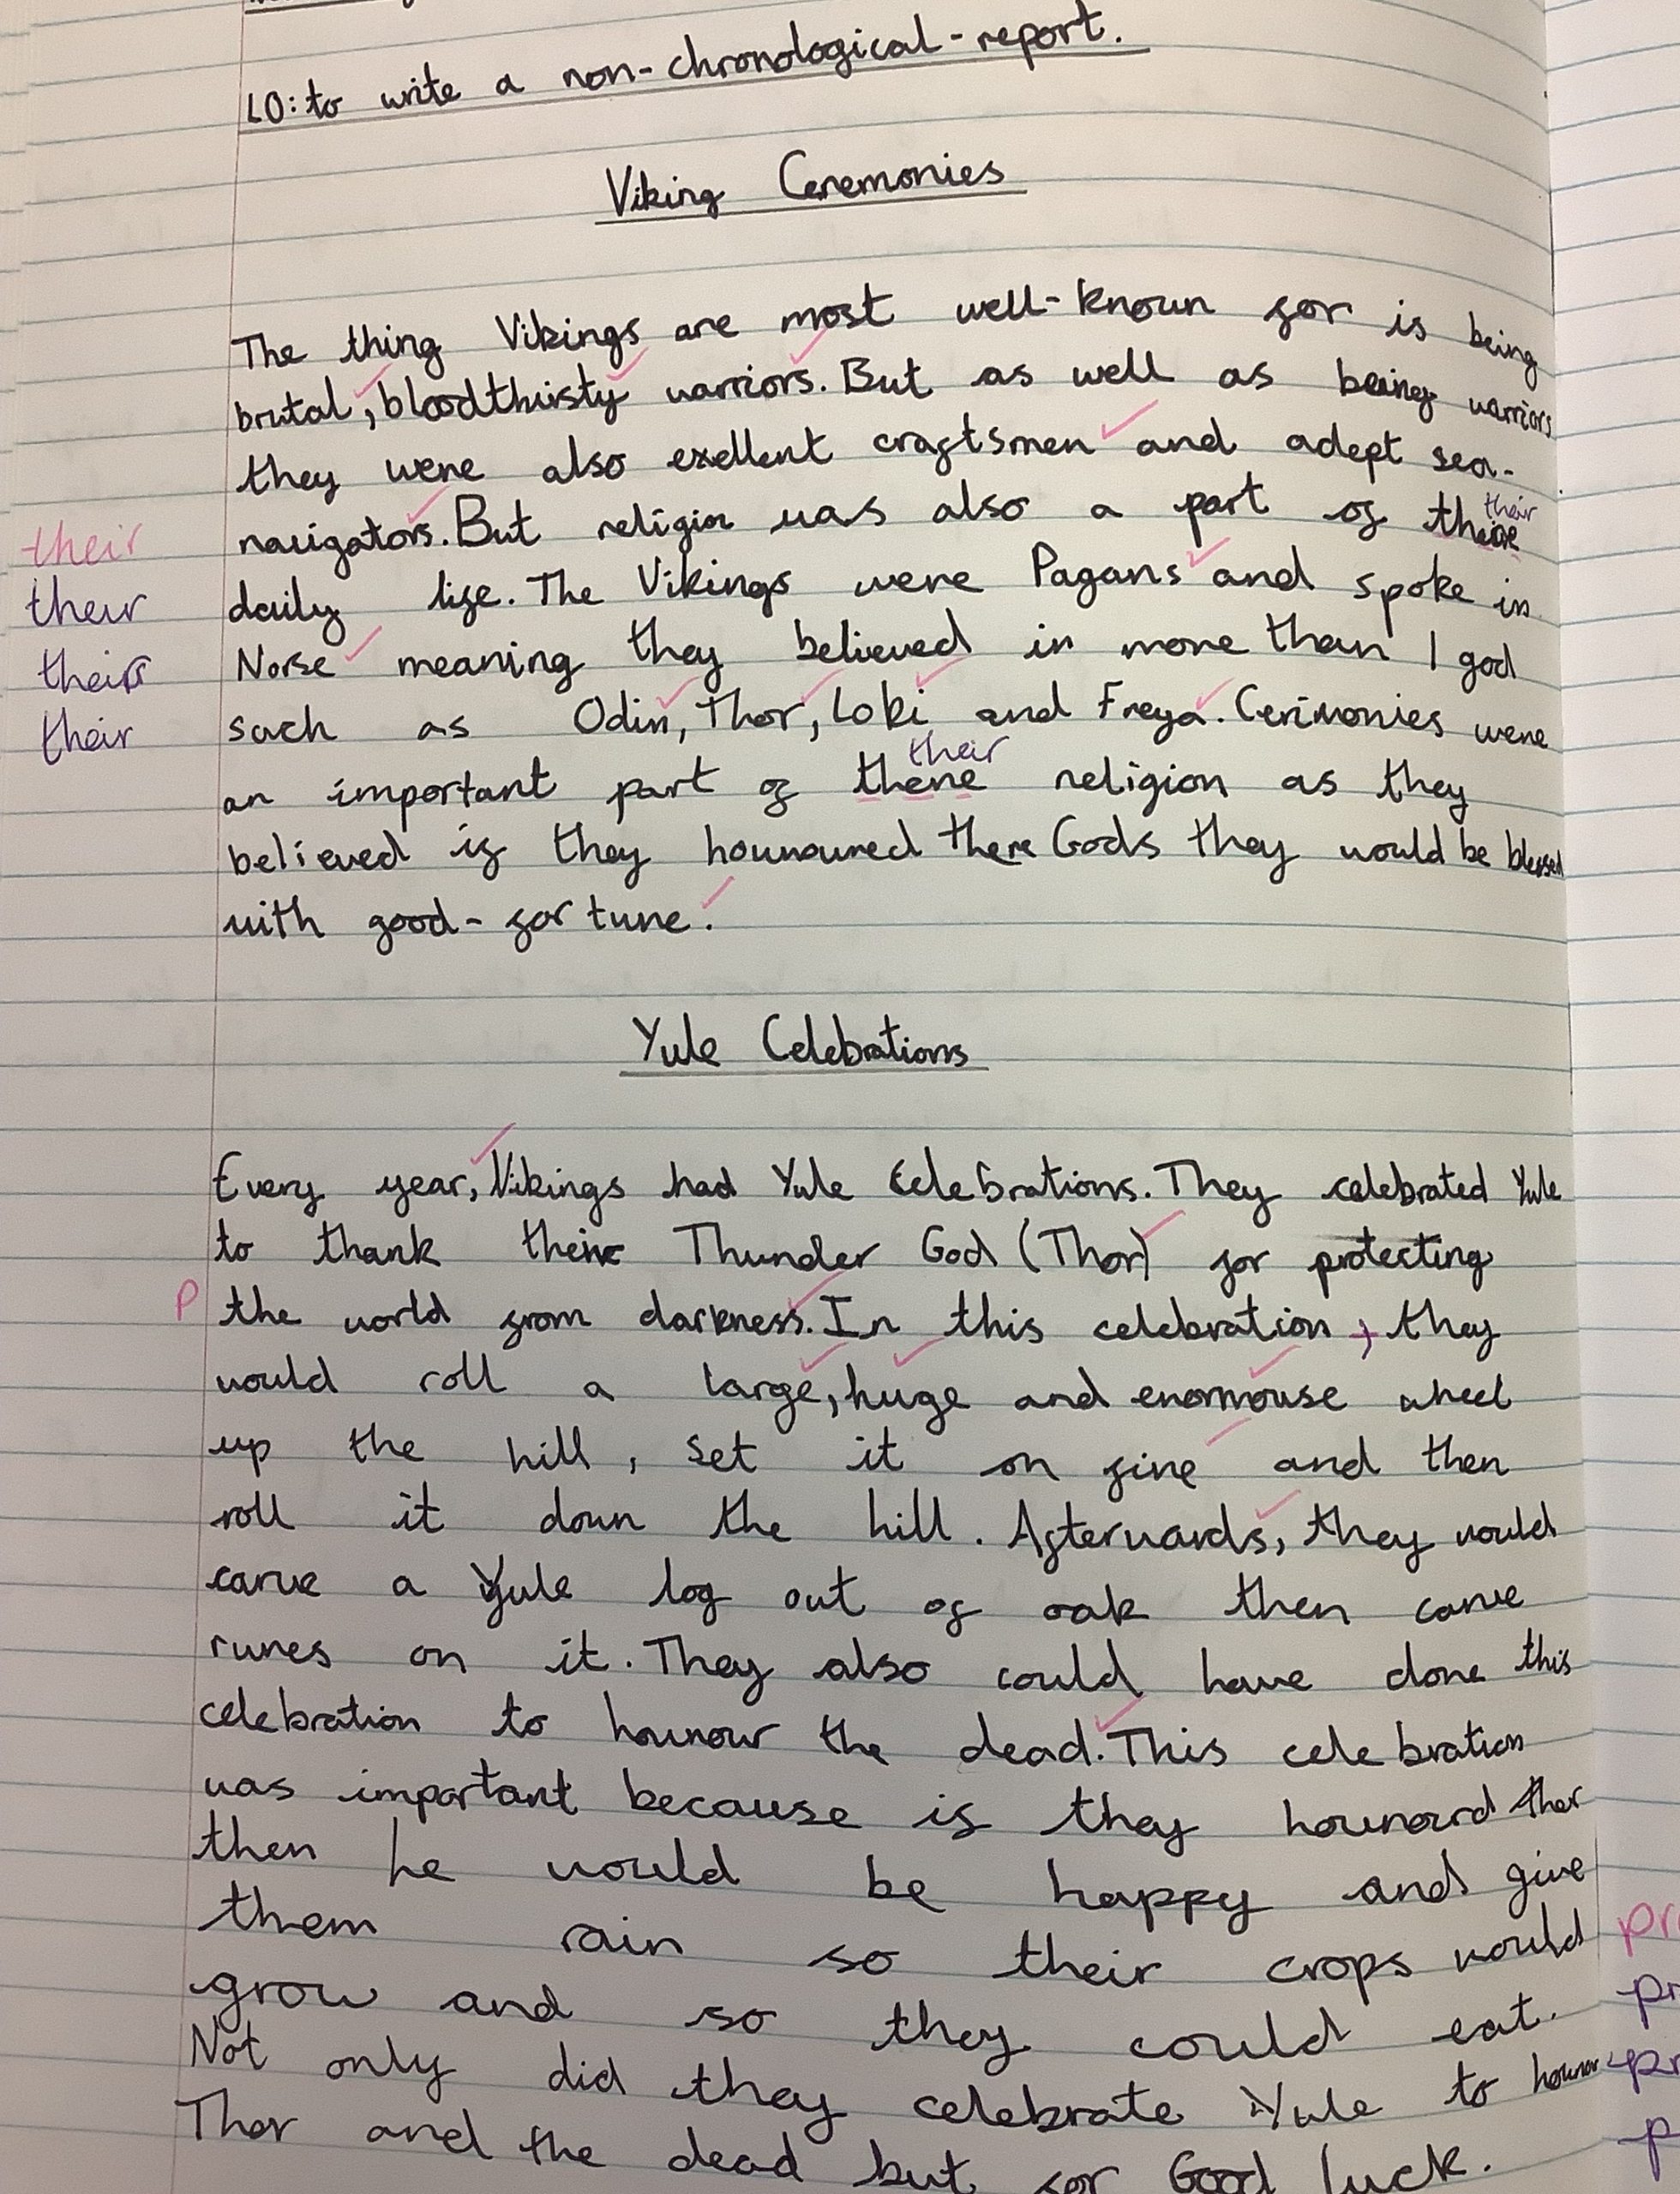 LO: to write a non-chronological-report.
Viking Ceremonies
The thing Vikings are most well-known for is being
brutal, bloodthirsty warriors. But as well as being warriors
they were also exellent craftsmen and adept sea-
navigators. But religion was also a part of their
their
daily life. The Vikings were Pagans and spoke in
their
Norse meaning they believed in more than 1 god
theirs
such as Odin, Thor, Loki and Freya. Cerimonies were
their
their
an important part of there religion as they
believed if they hounoured there Gods they would be blessed
with good-fortune.
Yule Celebrations
Every year, Vikings had Yule Celebrations. They celebrated Yule
to thank their Thunder God (Thor) for protecting
P the world from darkness. In this celebration, they
would roll a large, huge and enormouse wheel
up the hill, set it on fire and then
roll it down the hill. Afterwards, they would
carve a Yule log out of oak then carve
runes on it. They also could have done this
celebration to hounour the dead. This celebration
was important because if they hounourd Thor
then he would be happy and give
them rain so their crops would
pr
grow and so they could eat.
pr
Not only did they celebrate Yule to hounour
pr
Thor and the dead but for Good luck.
p